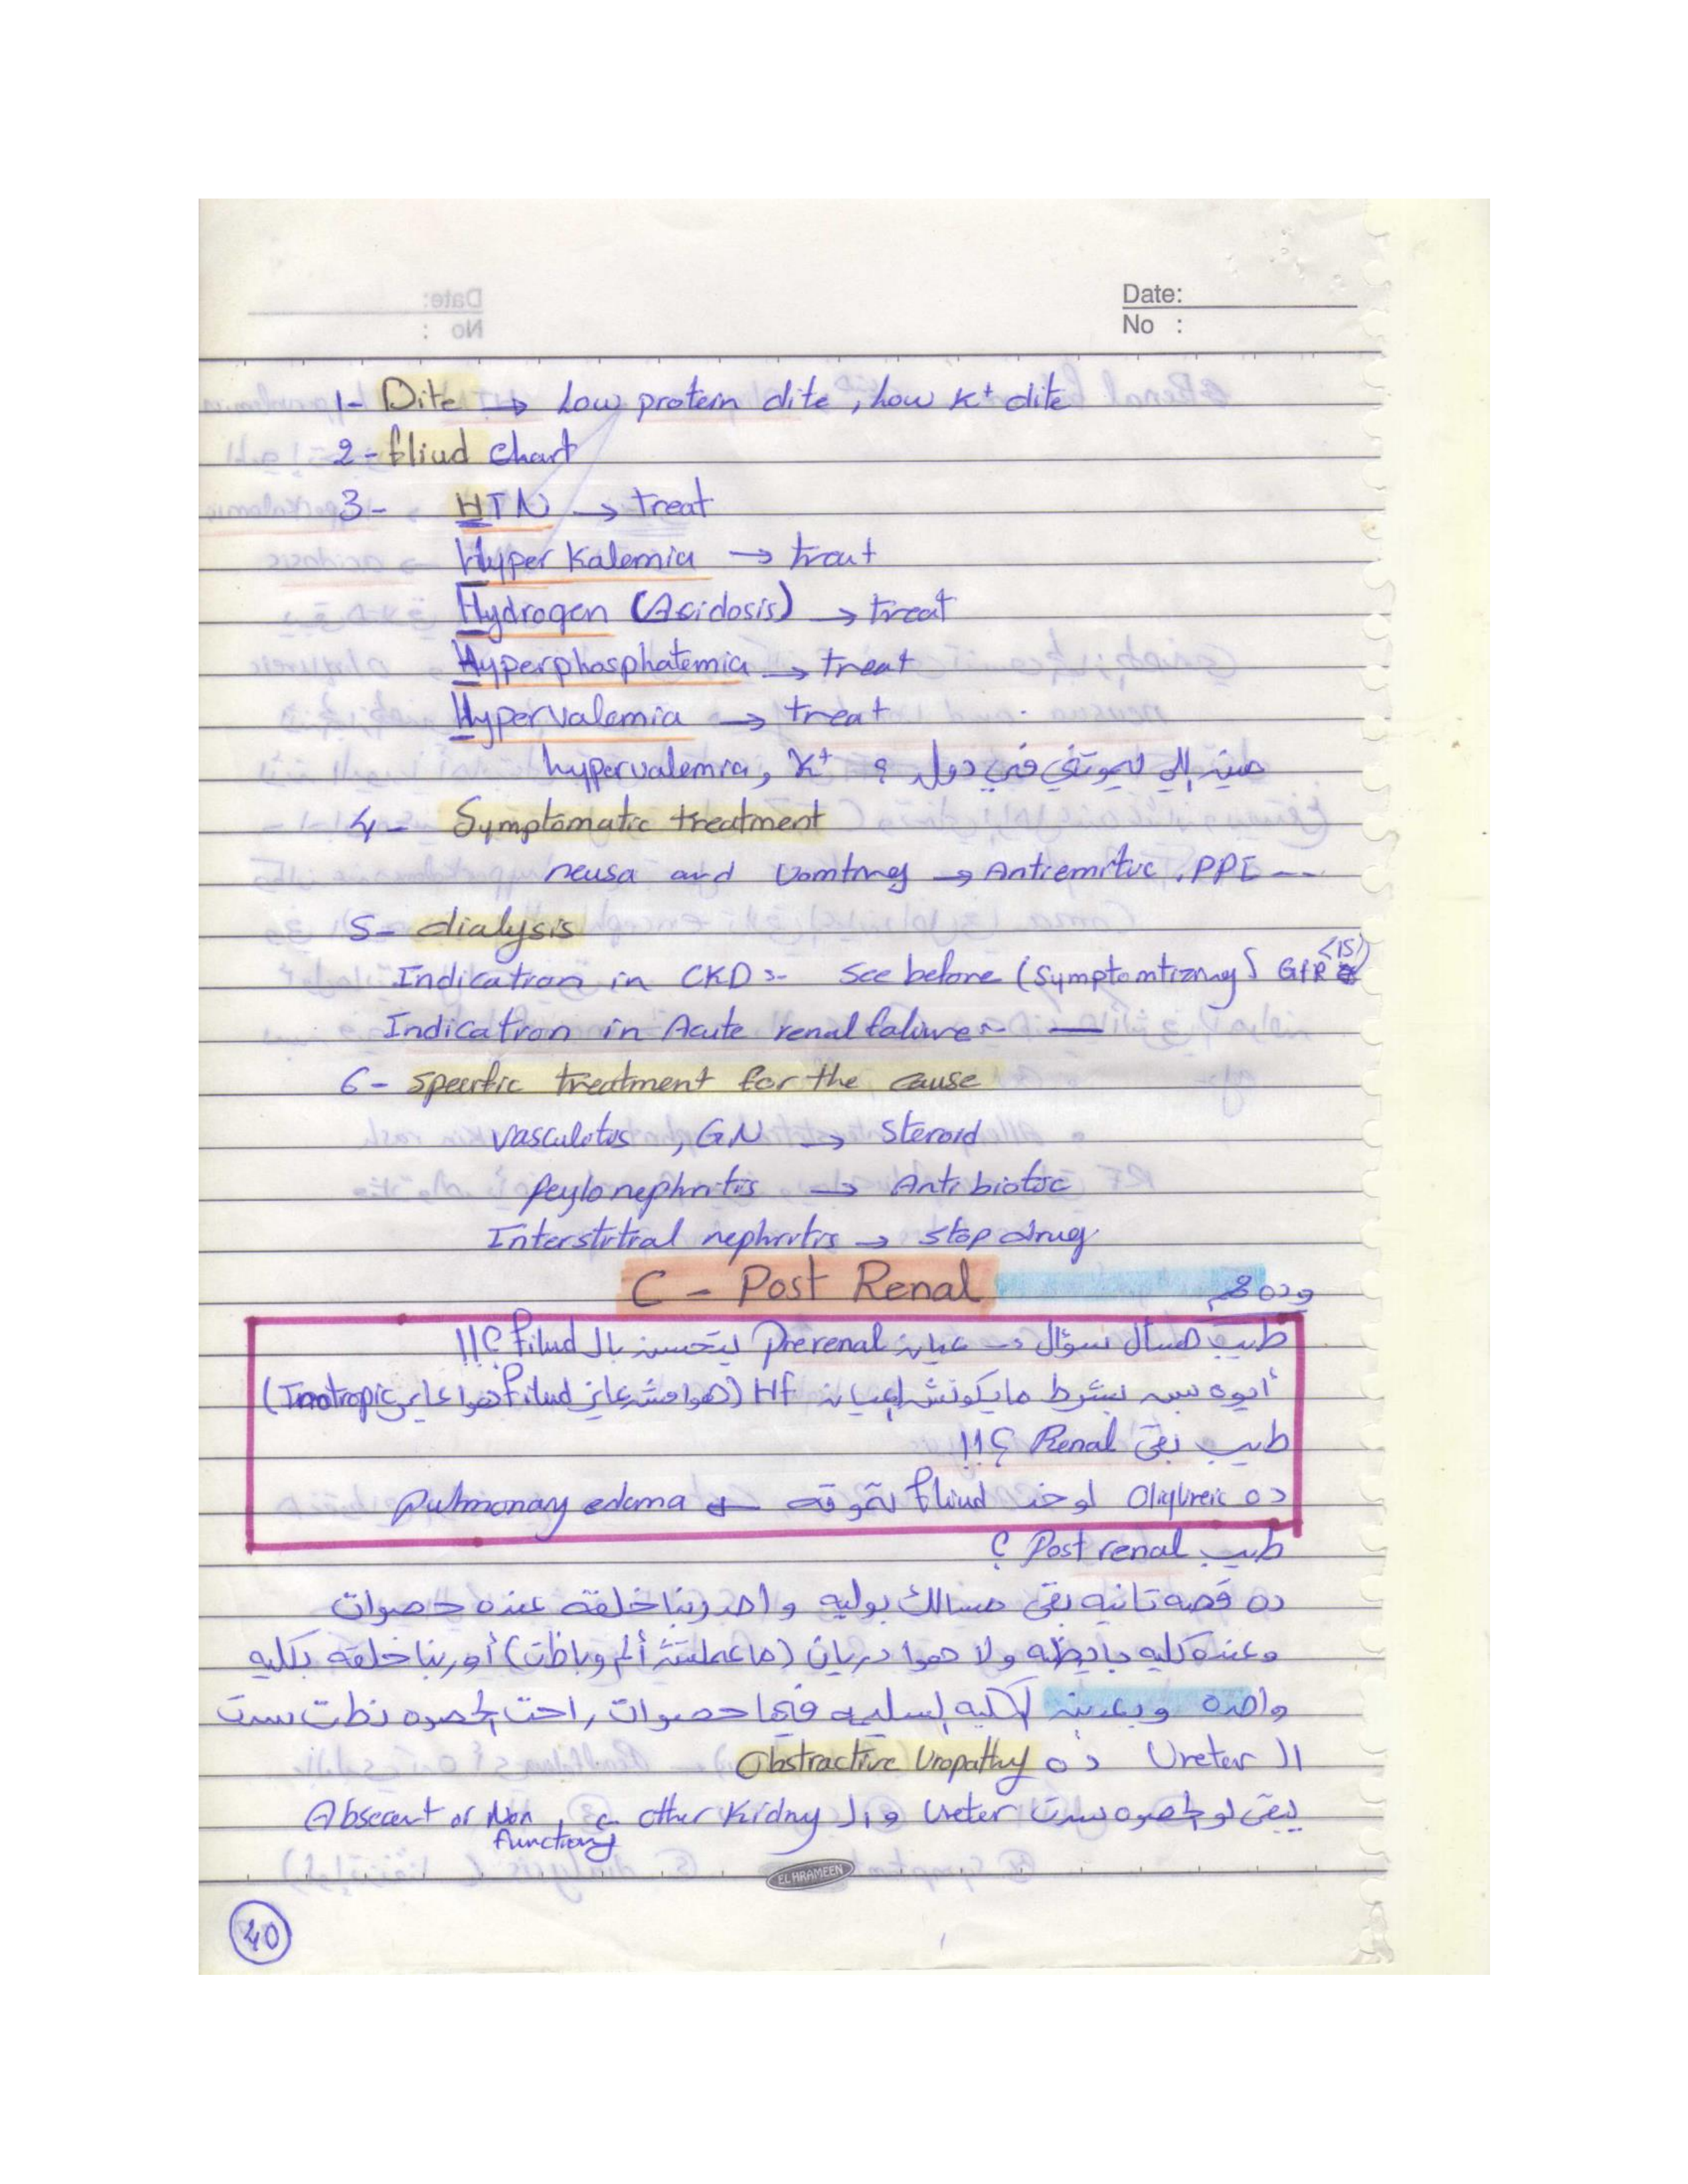 Date:
No :
1- Dite → Low protein dite, Low K+ dite
2- fliud chart
3- HTN → treat
Hyper Kalemia → treat
Hydrogen (Acidosis) → treat
Hyperphosphatemia → treat
Hypervalemia → treat
مين إللي يموتني في دول ؟ hypervalemia, K+
4- Symptomatic treatment
neusa and Vomtiney → Antiemitic, PPI ---
5- dialysis
Indication in CKD :- See before (Symptomtizing, GFR <15)
Indication in Acute renal faliure ~ —
6- Specific treatment for the cause
vasculotis, GN → Steroid
Peylonephritis → Antibiotic
Interstitial nephritis → stop drug
C - Post Renal
وده مهم
طيب هسأل سؤال → عيان Prerenal يتحسن بال fliud ؟!!
أيوه بس بشرط مايكونش عيان HF (هوا مش عايز fliud هوا عايز Inotropic)
طيب بقى Renal ؟!!
ده Oliqureic لو خد fliud تموته ← pulmonary edema
طيب Post renal ؟
ده قصه تانيه بقى مسالك بوليه واحد ربنا خلقه عنده حصوات
وعنده كليه بايظه ولا هوا دريان (ما عملتش ألم وباظت) أو ربنا خلقه بكليه
واحده وبعدين الكليه السليمه فيها حصوات, راحت الحصوه نطت سدت
ال Ureter ده Obstractive Uropathy
يبقى لو الحصوه سدت Ureter وال other Kidny Absecent or Non functiong
EL HRAMEEN
40